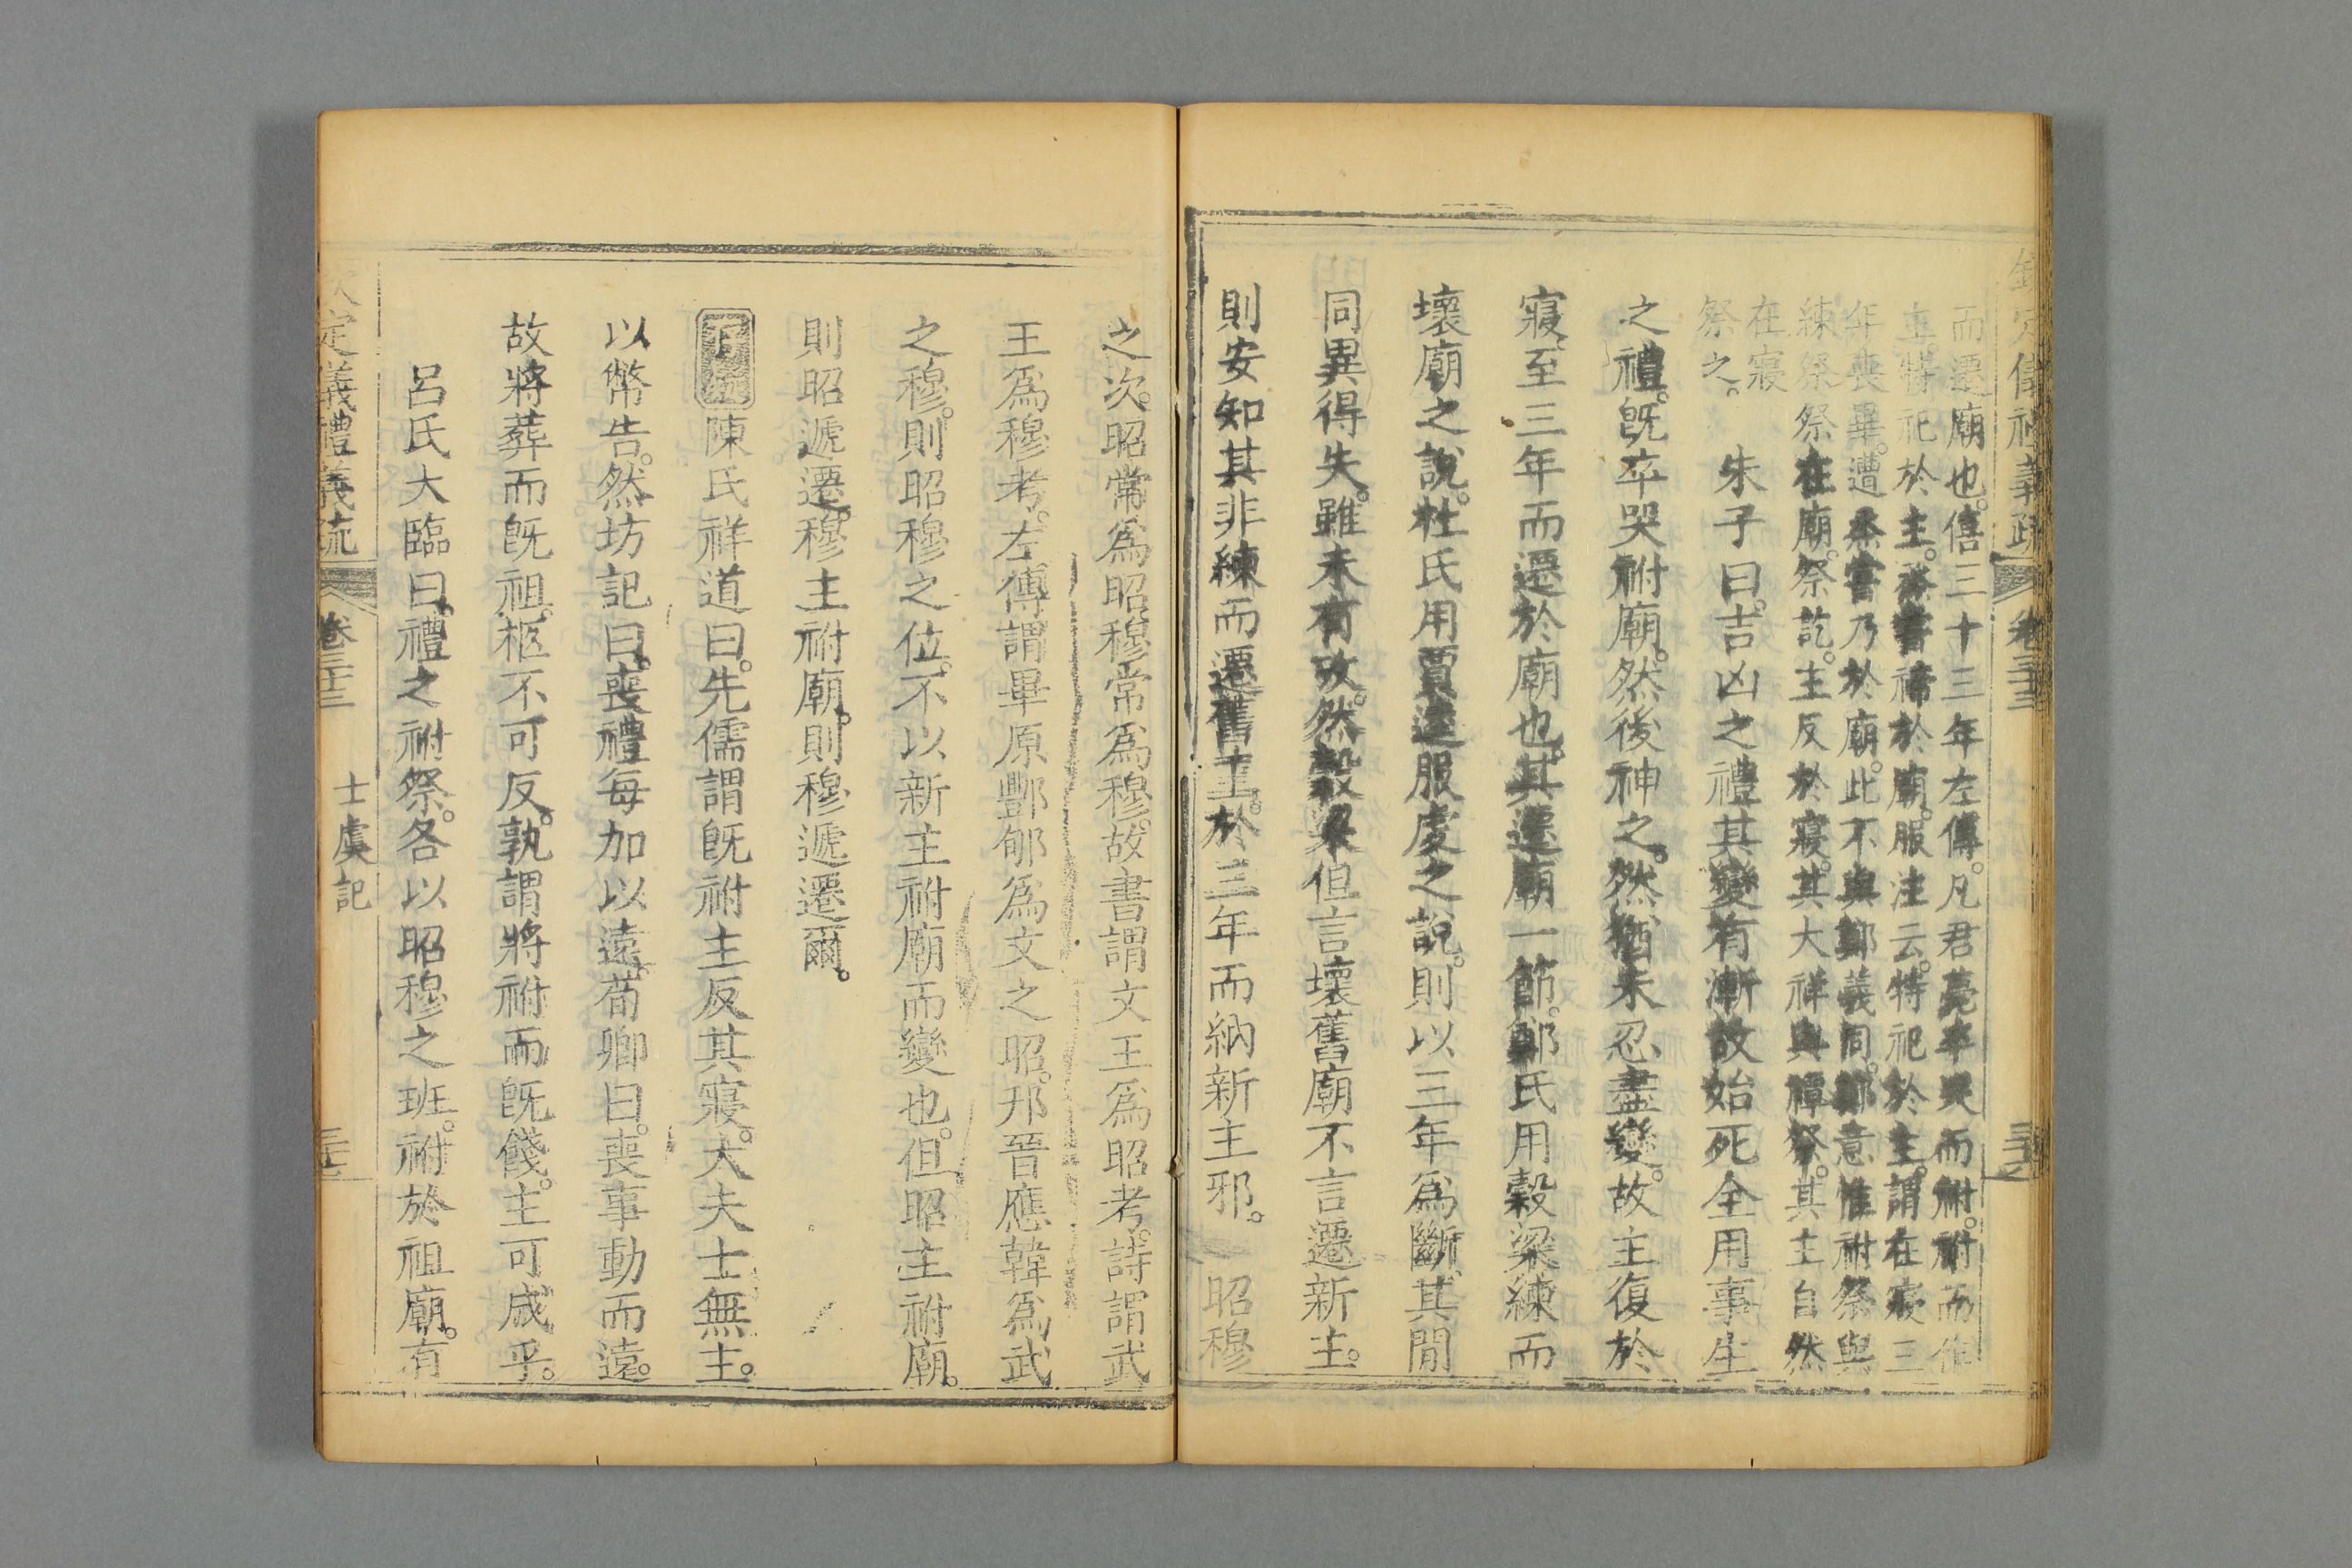 欽定儀禮義疏 卷三十三
而遷廟也。僖三十三年左傳。凡君薨卒哭而祔。祔而作
主。特祀於主。烝嘗禘於廟。服注云。特祀於主。謂在寢。三
年喪畢。遭烝嘗乃於廟。此不與鄭義同。鄭意惟祔祭與
練祭祭在廟。祭訖。主反於寢。其大祥與禫祭。其主自然
在寢
祭之。
朱子曰。吉凶之禮其變有漸故始死全用事生
之禮。旣卒哭祔廟。然後神之。然猶未忍盡變。故主復於
寢。至三年而遷於廟也。其遷廟一節。鄭氏用穀梁練而
壞廟之說。杜氏用賈逵服虔之說。則以三年爲斷。其閒
同異得失。雖未有攷。然穀梁但言壞舊廟不言遷新主。
則安知其非練而遷舊主。於三年而納新主邪。 昭穆
之次。昭常爲昭穆常爲穆。故書謂文王爲昭考。詩謂武
王爲穆考。左傳謂畢原酆郇爲文之昭。邘晉應韓爲武
之穆。則昭穆之位。不以新主祔廟而變也。但昭主祔廟。
則昭遞遷。穆主祔廟。則穆遞遷爾。
陳氏祥道曰。先儒謂旣祔主反其寢。大夫士無主。
以幣告。然坊記曰。喪禮每加以遠。荀卿曰。喪事動而遠。
故將葬而旣祖。柩不可反。孰謂將祔而旣餞。主可咸乎。
呂氏大臨曰。禮之祔祭。各以昭穆之班。祔於祖廟。有
欽定儀禮義疏 卷三十三 士虞記